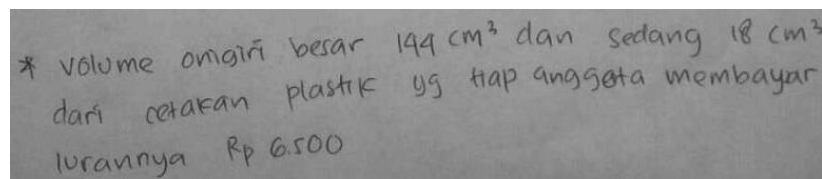 * volume onigiri besar 144 cm³ dan sedang 18 cm³
dari cetakan plastik yg tiap anggota membayar
Iurannya Rp 6.500